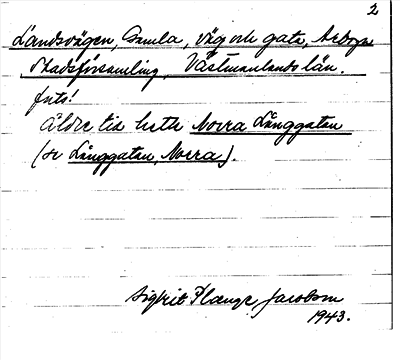 2
Landsvägen, Gamla, väg och gata, Arboga
Stadsförsamling, Västmanlands län.
forts!
Äldre tid hette Norra Långgatan
(se Långgatan, Norra).
Sigfrid Plange Jacobson
1943.